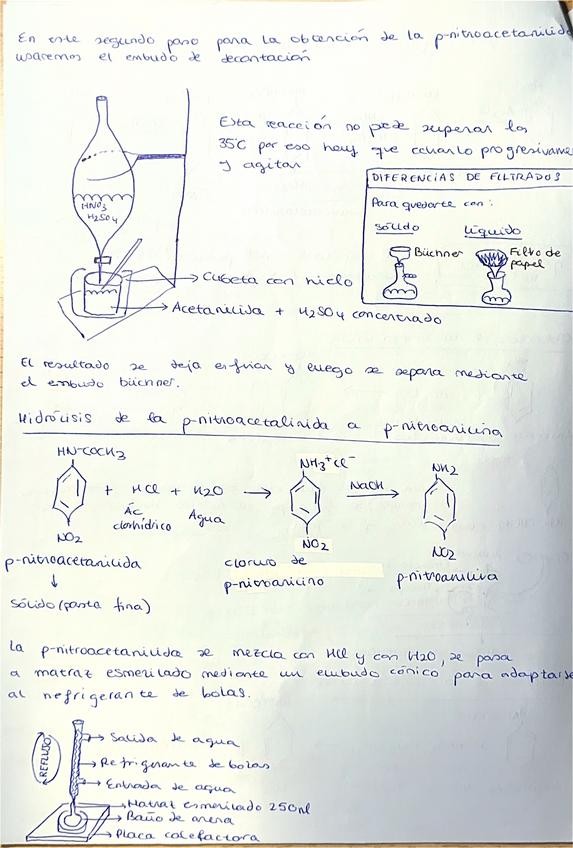 En este segundo paso para la obtención de la p-nitroacetanilida
usaremos el embudo de decantación
Esta reacción no pede superar los
35°C por eso hay que echarlo progresivame
y agitar
HNO3
H2SO4
DIFERENCIAS DE FILTRADOS
Para quedarte con:
sólido
líquido
Büchner
Filtro de
papel
Cubeta con hielo
Acetanilida + H2SO4 concentrado
El resultado se deja enfriar y luego se separa mediante
el embudo büchner.
Hidrólisis de la p-nitroacetalinida a p-nitroanilina
HN-COCH3
NH3+Cl-
NH2
+ HCl + H2O → NaOH →
Ác
clorhídrico
Agua
NO2
NO2
NO2
p-nitroacetanilida
cloruro de
p-nitroanilino
p-nitroanilina
↓
Sólido (pasta fina)
La p-nitroacetanilida se mezcla con HCl y con H2O, se pasa
a matraz esmerilado mediante un embudo cónico para adaptarse
al refrigerante de bolas.
REFLUJO
Salida de agua
Refrigerante de bolas
Entrada de agua
Matraz esmerilado 250ml
Baño de arena
Placa calefactora